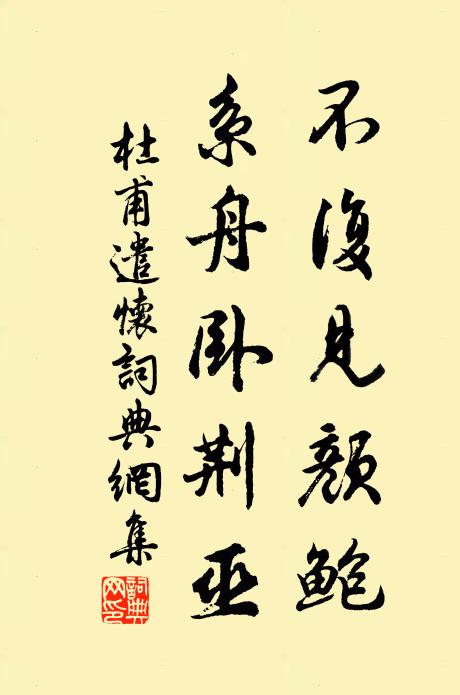 不復見顏鮑
系舟卧荆巫
杜甫遣懷詞典網集
詞典
网印